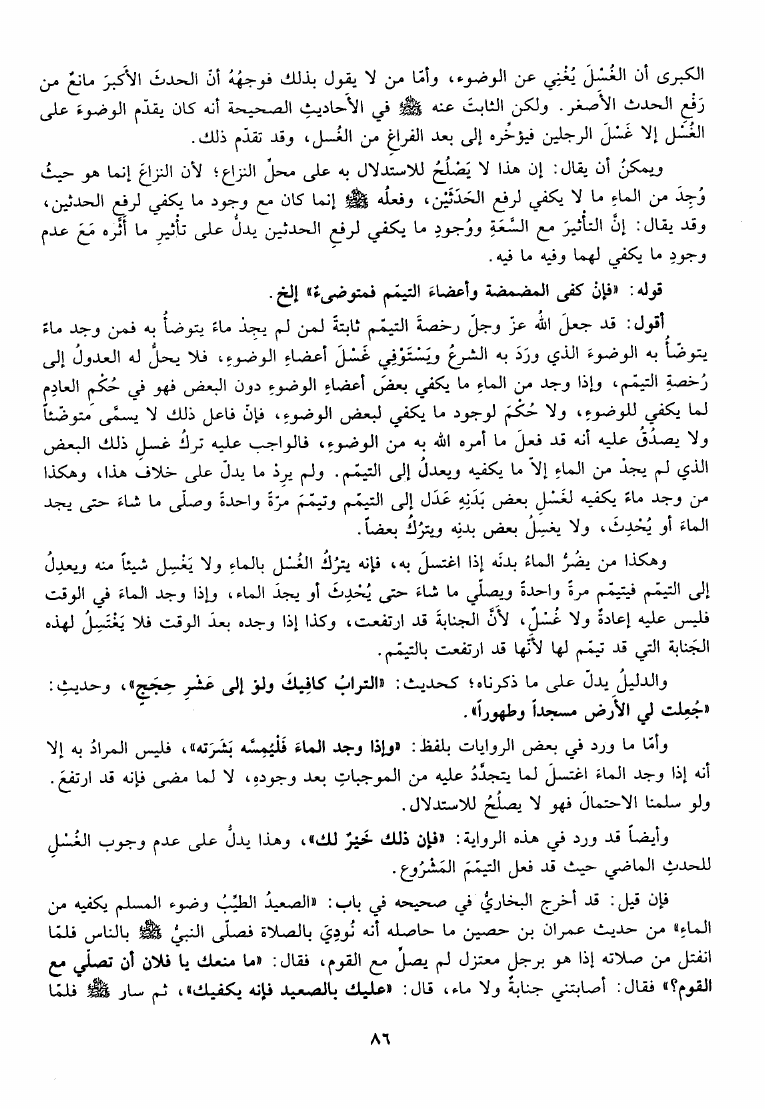 الكبرى أن الغُسْلَ يُغْنِي عن الوضوء، وأمّا من لا يقول بذلك فوجهُهُ أنّ الحدثَ الأَكبرَ مانعٌ من
رَفْعِ الحدث الأصغر. ولكن الثابتَ عنه ﷺ في الأحاديثِ الصحيحة أنه كان يقدّم الوضوءَ على
الغُسْل إلا غَسْلَ الرجلين فيؤخِّره إلى بعد الفراغِ من الغُسل، وقد تقدّم ذلك.
ويمكنُ أن يقال: إن هذا لا يَصْلُحُ للاستدلال به على محلِّ النزاع؛ لأن النزاعَ إنما هو حيثُ
وُجِدَ من الماءِ ما لا يكفي لرفع الحَدَثَيْن، وفعلُه ﷺ إنما كان مع وجود ما يكفي لرفع الحدثين،
وقد يقال: إنَّ التأثيرَ مع السَّعَةِ ووُجودِ ما يكفي لرفعِ الحدثين يدلُّ على تأثيرِ ما أثَّره مَعَ عدم
وجودِ ما يكفي لهما وفيه ما فيه.
قوله: «فإنْ كفى المضمضة وأعضاءَ التيمّم فمتوضىءٌ» إلخ.
أقول: قد جعلَ اللهُ عزّ وجلّ رخصةَ التيمّم ثابتةً لمن لم يجِدْ ماءً يتوضأُ به فمن وجد ماءً
يتوضّأُ به الوضوءَ الذي ورَدَ به الشرعُ ويَسْتَوْفِي غَسْلَ أعضاءِ الوضوءِ، فلا يحلُّ له العدولُ إلى
رُخصةِ التيمّم، وإذا وجد من الماءِ ما يكفي بعضَ أعضاءِ الوضوءِ دون البعض فهو في حُكْمِ العادِم
لما يكفي للوضوءِ، ولا حُكْمَ لوجود ما يكفي لبعض الوضوءِ، فإنّ فاعل ذلك لا يسمَّى متوضّئاً
ولا يصدُقُ عليه أنه قد فعلَ ما أمره الله به من الوضوءِ، فالواجب عليه تركُ غسلِ ذلك البعض
الذي لم يجدْ من الماءِ إلاّ ما يكفيه ويعدلُ إلى التيمّم. ولم يرِدْ ما يدلّ على خلاف هذا، وهكذا
من وجد ماءً يكفيه لغَسْلِ بعض بَدَنِهِ عَدَل إلى التيمّم وتيمّمَ مرّةً واحدةً وصلّى ما شاءَ حتى يجد
الماءَ أو يُحْدِثَ، ولا يغسِلُ بعض بدنِه ويترُكُ بعضاً.
وهكذا من يضُرُّ الماءُ بدنَه إذا اغتسلَ به، فإنه يترُكُ الغُسْل بالماءِ ولا يَغْسِل شيئاً منه ويعدِلُ
إلى التيمّم فيتيمّم مرةً واحدةً ويصلّي ما شاءَ حتى يُحْدِثَ أو يجدَ الماء، وإذا وجد الماءَ في الوقت
فليس عليه إعادةٌ ولا غُسْلٌ، لأنَّ الجنابةَ قد ارتفعت، وكذا إذا وجده بعدَ الوقت فلا يَغْتَسِلُ لهذه
الجَنابة التي قد تيمّم لها لأنّها قد ارتفعت بالتيمّم.
والدليلُ يدلّ على ما ذكرناه؛ كحديث: «الترابُ كافِيكَ ولوْ إلى عَشْرِ حِجَجٍ»، وحديثِ:
«جُعِلت لي الأرض مسجداً وطهوراً».
وأمّا ما ورد في بعض الروايات بلفظ: «وإذا وجد الماءَ فَلْيُمِسَّه بَشَرَته»، فليس المرادُ به إلا
أنه إذا وجد الماءَ اغتسلَ لما يتجدَّدُ عليه من الموجباتِ بعد وجودِهِ، لا لما مضى فإنه قد ارتفعَ.
ولو سلمنا الاحتمالَ فهو لا يصلُحُ للاستدلال.
وأيضاً قد ورد في هذه الرواية: «فإن ذلك خَيْرٌ لك»، وهذا يدلُّ على عدم وجوب الغُسْلِ
للحدثِ الماضي حيث قد فعل التيمّمَ المَشْرُوع.
فإن قيل: قد أخرج البخاريُّ في صحيحه في باب: «الصعيدُ الطيِّبُ وضوء المسلم يكفيه من
الماءِ» من حديث عمران بن حصين ما حاصله أنه نُودِيَ بالصلاة فصلّى النبيُّ ﷺ بالناس فلمّا
انفتل من صلاته إذا هو برجل معتزل لم يصلِّ مع القوم، فقال: «ما منعك يا فلان أن تصلّي مع
القوم؟» فقال: أصابتني جنابةٌ ولا ماء، قال: «عليك بالصعيد فإنه يكفيك»، ثم سار ﷺ فلمّا
٨٦